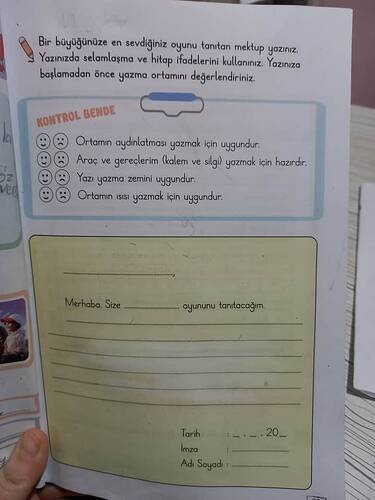 Bir büyüğünüze en sevdiğiniz oyunu tanıtan mektup yazınız.
Yazınızda selamlaşma ve hitap ifadelerini kullanınız. Yazınıza
başlamadan önce yazma ortamını değerlendiriniz.
KONTROL BENDE
Ortamın aydınlatması yazmak için uygundur.
Araç ve gereçlerim (kalem ve silgi) yazmak için hazırdır.
Yazı yazma zemini uygundur.
Ortamın ısısı yazmak için uygundur.
____________,
Merhaba. Size ____________ oyununu tanıtacağım.
Tarih : _ . _ . 20_
İmza : ____________
Adı Soyadı : ____________